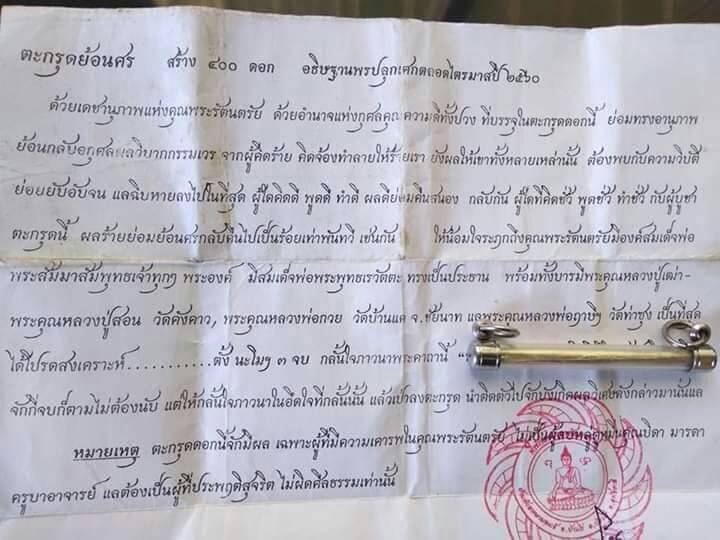 ตะกรุดย้อนศร สร้าง ๔๐๐ ดอก อธิษฐานพรปลุกเศกตถอดไตรมาสปี ๒๕๖๐
ด้วยเดชานุภาพแห่งคุณพระรัตนตรัย ด้วยอำนาจแห่งกุศลคุณความดีทั้งปวง ที่บรรจุในตะกรุดดอกนี้ ย่อมทรงอานุภาพ
ย้อนกลับอกุศลผลวิบากกรรมเวร จากผู้คิดร้าย คิดจ้องทำลายให้ร้ายเรา ยังผลให้เขาทั้งหลายเหล่านั้น ต้องพบกับความวิบัติ
ย่อยยับอับจน แลฉิบหายลงไปในที่สุด ผู้ใดคิดดี พูดดี ทำดี ผลดีย่อมคืนสนอง กลับกัน ผู้ใดที่คิดชั่ว พูดชั่ว ทำชั่ว กับผู้บูชา
ตะกรุดนี้ ผลร้ายย่อมย้อนศรกลับคืนไปเป็นร้อยเท่าพันทวี เช่นกัน ให้น้อมใจระฦกถึงคุณพระรัตนตรัยมีองค์สมเด็จพ่อ
พระสัมมาสัมพุทธเจ้าทุกๆ พระองค์ มีสมเด็จพ่อพระพุทธเรวัตตะ ทรงเป็นประธาน พร้อมทั้งบารมีพระคุณหลวงปู่เฒ่า-
พระคุณหลวงปู่สอน วัดคังคาว, พระคุณหลวงพ่อกวย วัดบ้านแค จ.ชัยนาท แลพระคุณหลวงพ่อฤาษีฯ วัดท่าซุง เป็นที่สุด
ได้โปรดสงเคราะห์...........ตั้ง นะโมฯ ๓ จบ กลั้นใจภาวนาพระคาถานี้ "
จักกี่จบก็ตามไม่ต้องนับ แต่ให้กลั้นใจภาวนาในอึดใจที่กลั้นนั้น แล้วเป่าลงตะกรุด นำติดตัวไปจักบังเกิดผลวิเศษดังกล่าวมานั้นแล
หมายเหตุ ตะกรุดดอกนี้จักมีผล เฉพาะผู้ที่มีความเคารพในคุณพระรัตนตรัย ไม่เป็นผู้ลบหลู่ดูหมิ่นคุณบิดา มารดา
ครูบาอาจารย์ แลต้องเป็นผู้ที่ประพฤติสุจริต ไม่ผิดศีลธรรมเท่านั้น